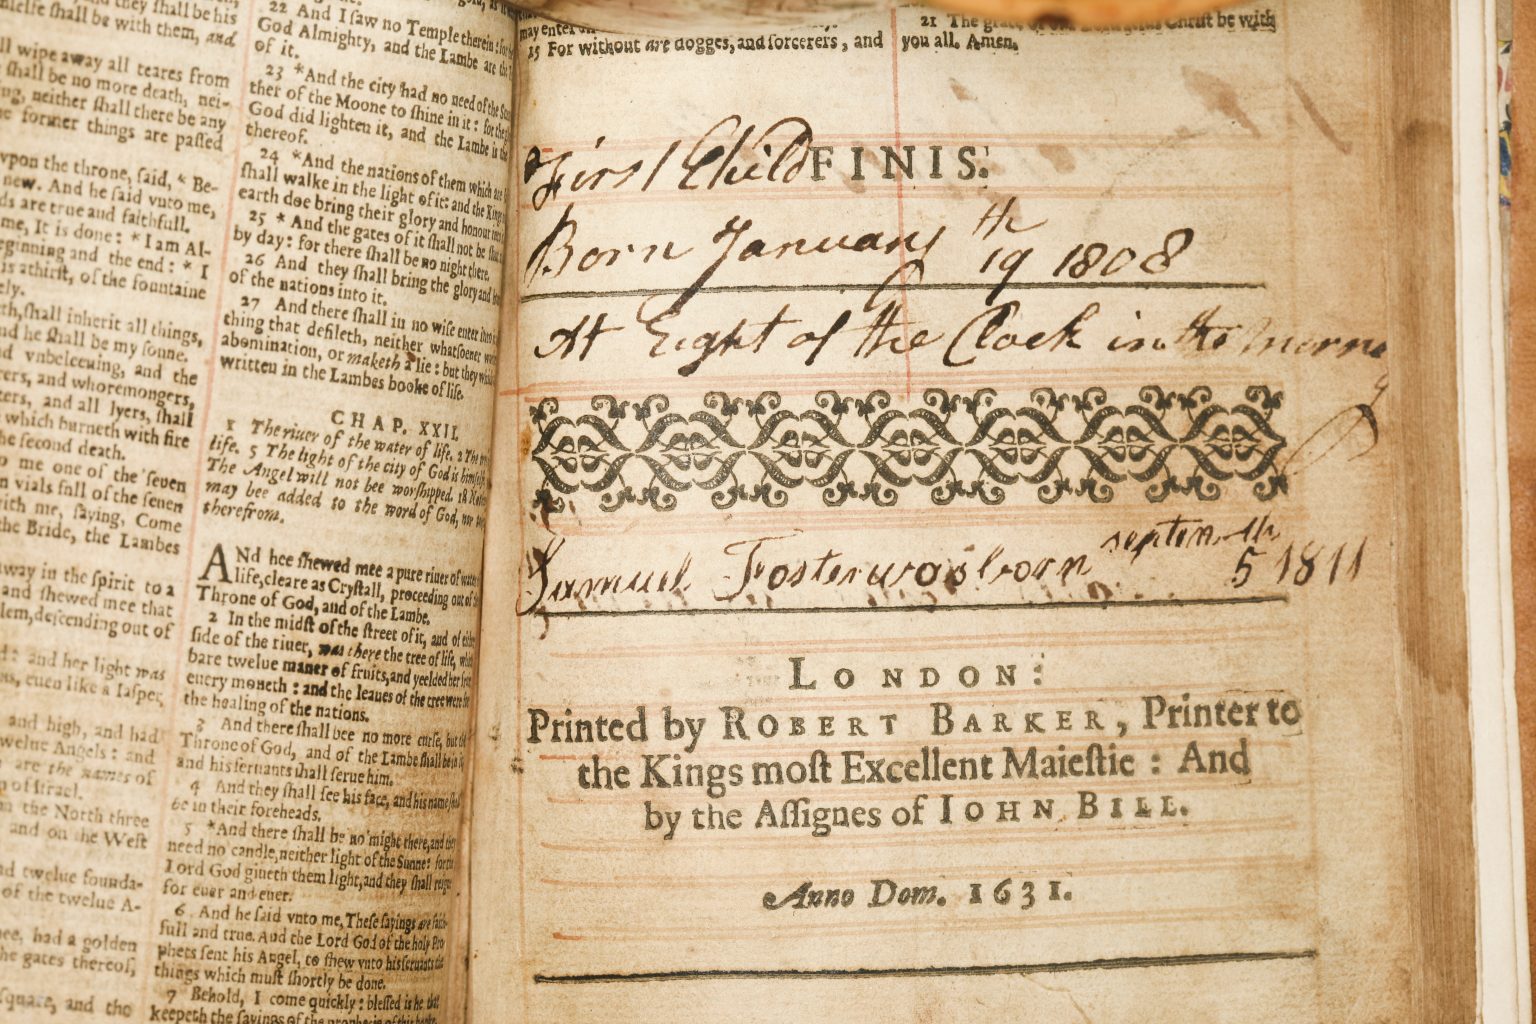 they shall be his
selfe shall be with them, and
wipe away all teares from
shall be no more death, nei-
neither shall there be any
former things are passed
vpon the throne, said, * Be-
new. And he said vnto me,
are true and faithfull.
me, It is done: * I am Al-
and the end: * I
is athirst, of the fountaine
shall inherit all things,
he shall be my sonne.
vnbeleeuing, and the
and whoremongers,
and all lyers, shall
which burneth with fire
second death.
me one of the seuen
vials full of the seuen
with me, saying, Come
the Bride, the Lambes
away in the spirit to a
and shewed me that
descending out of
and her light was
euen like a Iasper,
and high, and had
twelue Angels: and
are the names of
of Israel.
the North three
and on the West
twelue founda-
of the twelue A-
had a golden
the gates thereof,
square, and the
22 And I saw no Temple therein: for
God Almighty, and the Lambe are the
of it.
23 *And the city had no need of the Sunne
ther of the Moone to shine in it: for the
God did lighten it, and the Lambe is the
thereof.
24 *And the nations of them which are
shall walke in the light of it: and the Kings
earth doe bring their glory and honour
25 * And the gates of it shall not be shut
by day: for there shall be no night there.
26 And they shall bring the glory and
of the nations into it.
27 And there shall in no wise enter into
thing that defileth, neither whatsoeuer
abomination, or maketh a lie: but they
written in the Lambes booke of life.
CHAP. XXII.
1 The riuer of the water of life. 2 The
life. 5 The light of the city of God is himselfe.
The Angel will not bee worshipped. 18
may bee added to the word of God, nor
therefrom.
ANd hee shewed mee a pure riuer of water
life, cleare as Crystall, proceeding out of
Throne of God, and of the Lambe.
2 In the midst of the street of it, and of either
side of the riuer, was there the tree of life, which
bare twelue maner of fruits, and yeelded her fruit
euery moneth: and the leaues of the tree were for
the healing of the nations.
3 And there shall bee no more curse, but
Throne of God, and of the Lambe shall be in
and his seruants shall serue him.
4 And they shall see his face, and his name shall
be in their foreheads.
5 *And there shall be no night there, and they
need no candle, neither light of the Sunne: for the
Lord God giueth them light, and they shall reigne
for euer and euer.
6 And he said vnto me, These sayings are faith-
full and true. And the Lord God of the holy Pro-
phets sent his Angel, to shew vnto his seruants the
things which must shortly be done.
7 Behold, I come quickly: blessed is he that
keepeth the sayings of the prophesie of this booke.
may enter
15 For without are dogges, and sorcerers, and
21 The grace of our Lord Iesus Christ be with
you all. Amen.
First Child FINIS.
Born January th
19 1808
At Eight of the Clock in the morning
Samuel Foster was born septem th
5 1811
LONDON:
Printed by ROBERT BARKER, Printer to
the Kings most Excellent Maiestie: And
by the Assignes of IOHN BILL.
Anno Dom. 1631.